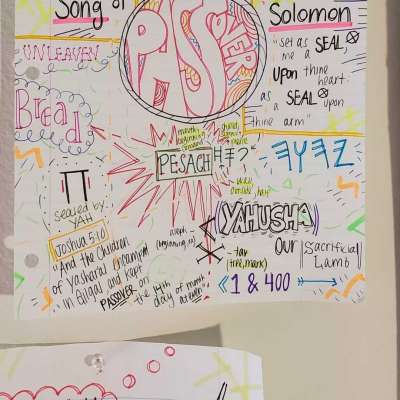 Song of
Solomon
PASSOVER
"set as
me a SEAL,
UPON thine
heart.
as a SEAL upon
thine arm"
UNLEAVEN
Bread
PESACH
sealed by
YAH
(YAHUSHA)
our Sacrificial
Lamb
Joshua 5:10
"And the Children
of Yasharal encamped
in Gilgal and kept
PASSOVER on
the 14th
day of month
at even"
aleph
(beginning, ox)
tav
(tree, mark)
1 & 400